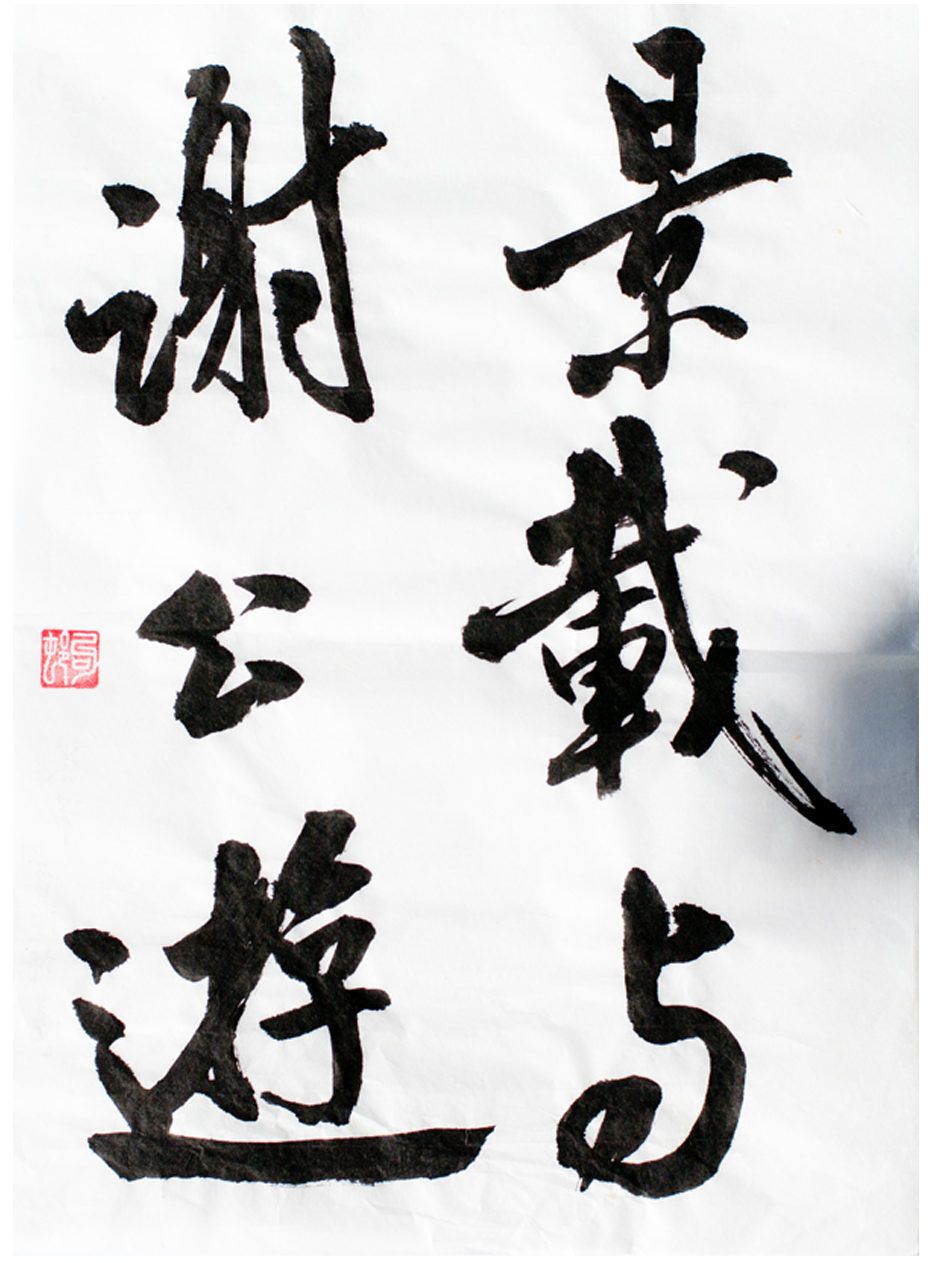 景載与
謝公遊